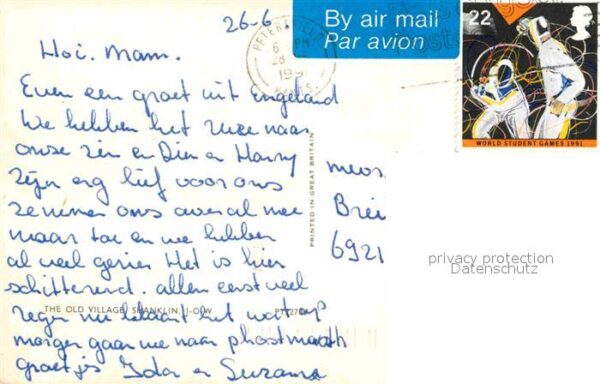 26-6
Hoi. Mam.
Even een groet uit Engeland
We hebben het zeer naar
onze zin en Dien en Harry
Zijn erg lief voor ons
ze nemen ons overal mee
naar toe en we hebben
al veel gezien Het is hier
schitterend. allen eerst veel
regen nu klaart het wat op
morgen gaan we naar phostmouth
groetjes Ida en Suzanna
THE OLD VILLAGE, SHANKLIN, I-O-W
PRINTED IN GREAT BRITAIN
By air mail
Par avion
PETERSFIELD
6 PM
28
HANTS
22
WORLD STUDENT GAMES 1991
mevr.
Brei
6921
privacy protection
Datenschutz